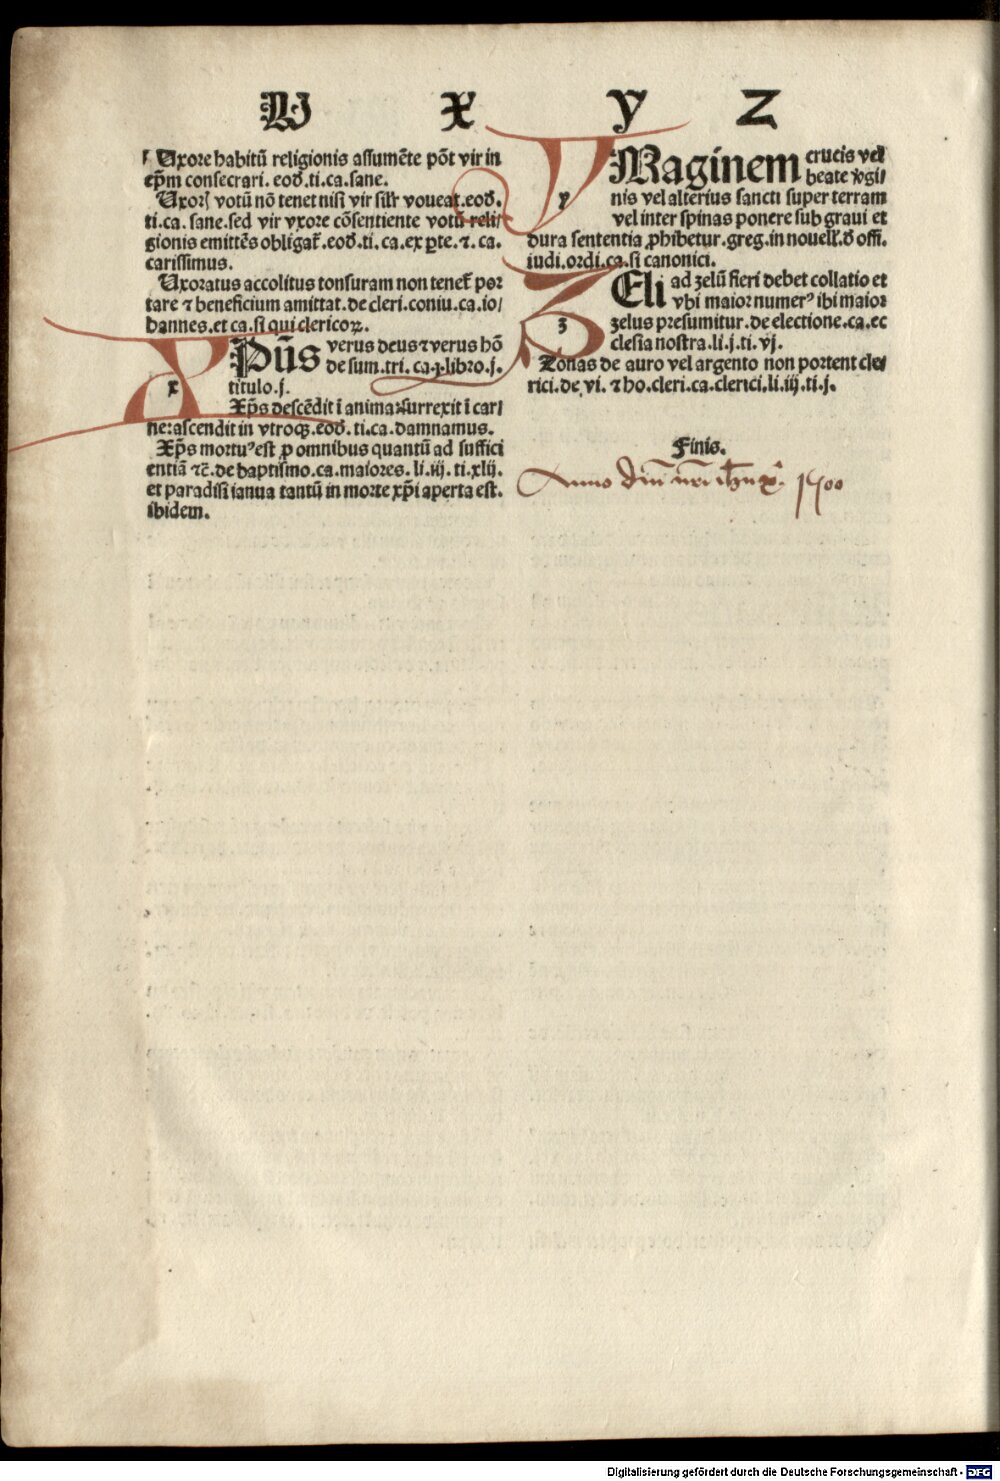 V X Y Z
Uxore habitū religionis assumēte pōt vir in
ep̄m consecrari. eod̄.ti.ca.sane.
Uxoris votū nō tenet nisi vir sil'r voueat.eod̄.
ti.ca.sane.sed vir vxore cōsentiente votū reli/
gionis emittēs obligat̄.eod̄.ti.ca.ex ꝑte.⁊.ca.
carissimus.
Uxoratus accolitus tonsuram non tenet̄ por
tare ⁊ beneficium amittat.de cleri.coniu.ca.io/
hannes.et ca.si qui clericoꝝ.
x
Pūs verus deus ⁊ verus hō
de sum.tri.ca.j.libro.j.
titulo.j.
Xp̄s descēdit ī anima: surrexit ī car/
ne: ascendit in vtroqꝫ.eod̄.ti.ca.damnamus.
Xp̄s mortuꝰ est ꝓ omnibus quantū ad suffici
entiā ⁊c̄.de baptismo.ca.maiores.li.iij.ti.xlij.
et paradisi ianua tantū in morte xp̄i aperta est.
ibidem.
y
Maginem crucis vel
beate v̄gi/
nis vel alterius sancti super terram
vel inter spinas ponere sub graui et
dura sententia ꝓhibetur.greg.in nouell'.d̄ offi.
iudi.ordi.ca.si canonici.
z
Eli ad zelū fieri debet collatio et
vbi maior numerꝰ ibi maior
zelus presumitur.de electione.ca.ec
clesia nostra.li.j.ti.vj.
Zonas de auro vel argento non portent cle/
rici.de.vi.⁊ ho.cleri.ca.clerici.li.iij.ti.j.
Finis.
Anno dn̄i nr̄i 1500
Digitalisierung gefördert durch die Deutsche Forschungsgemeinschaft - DFG